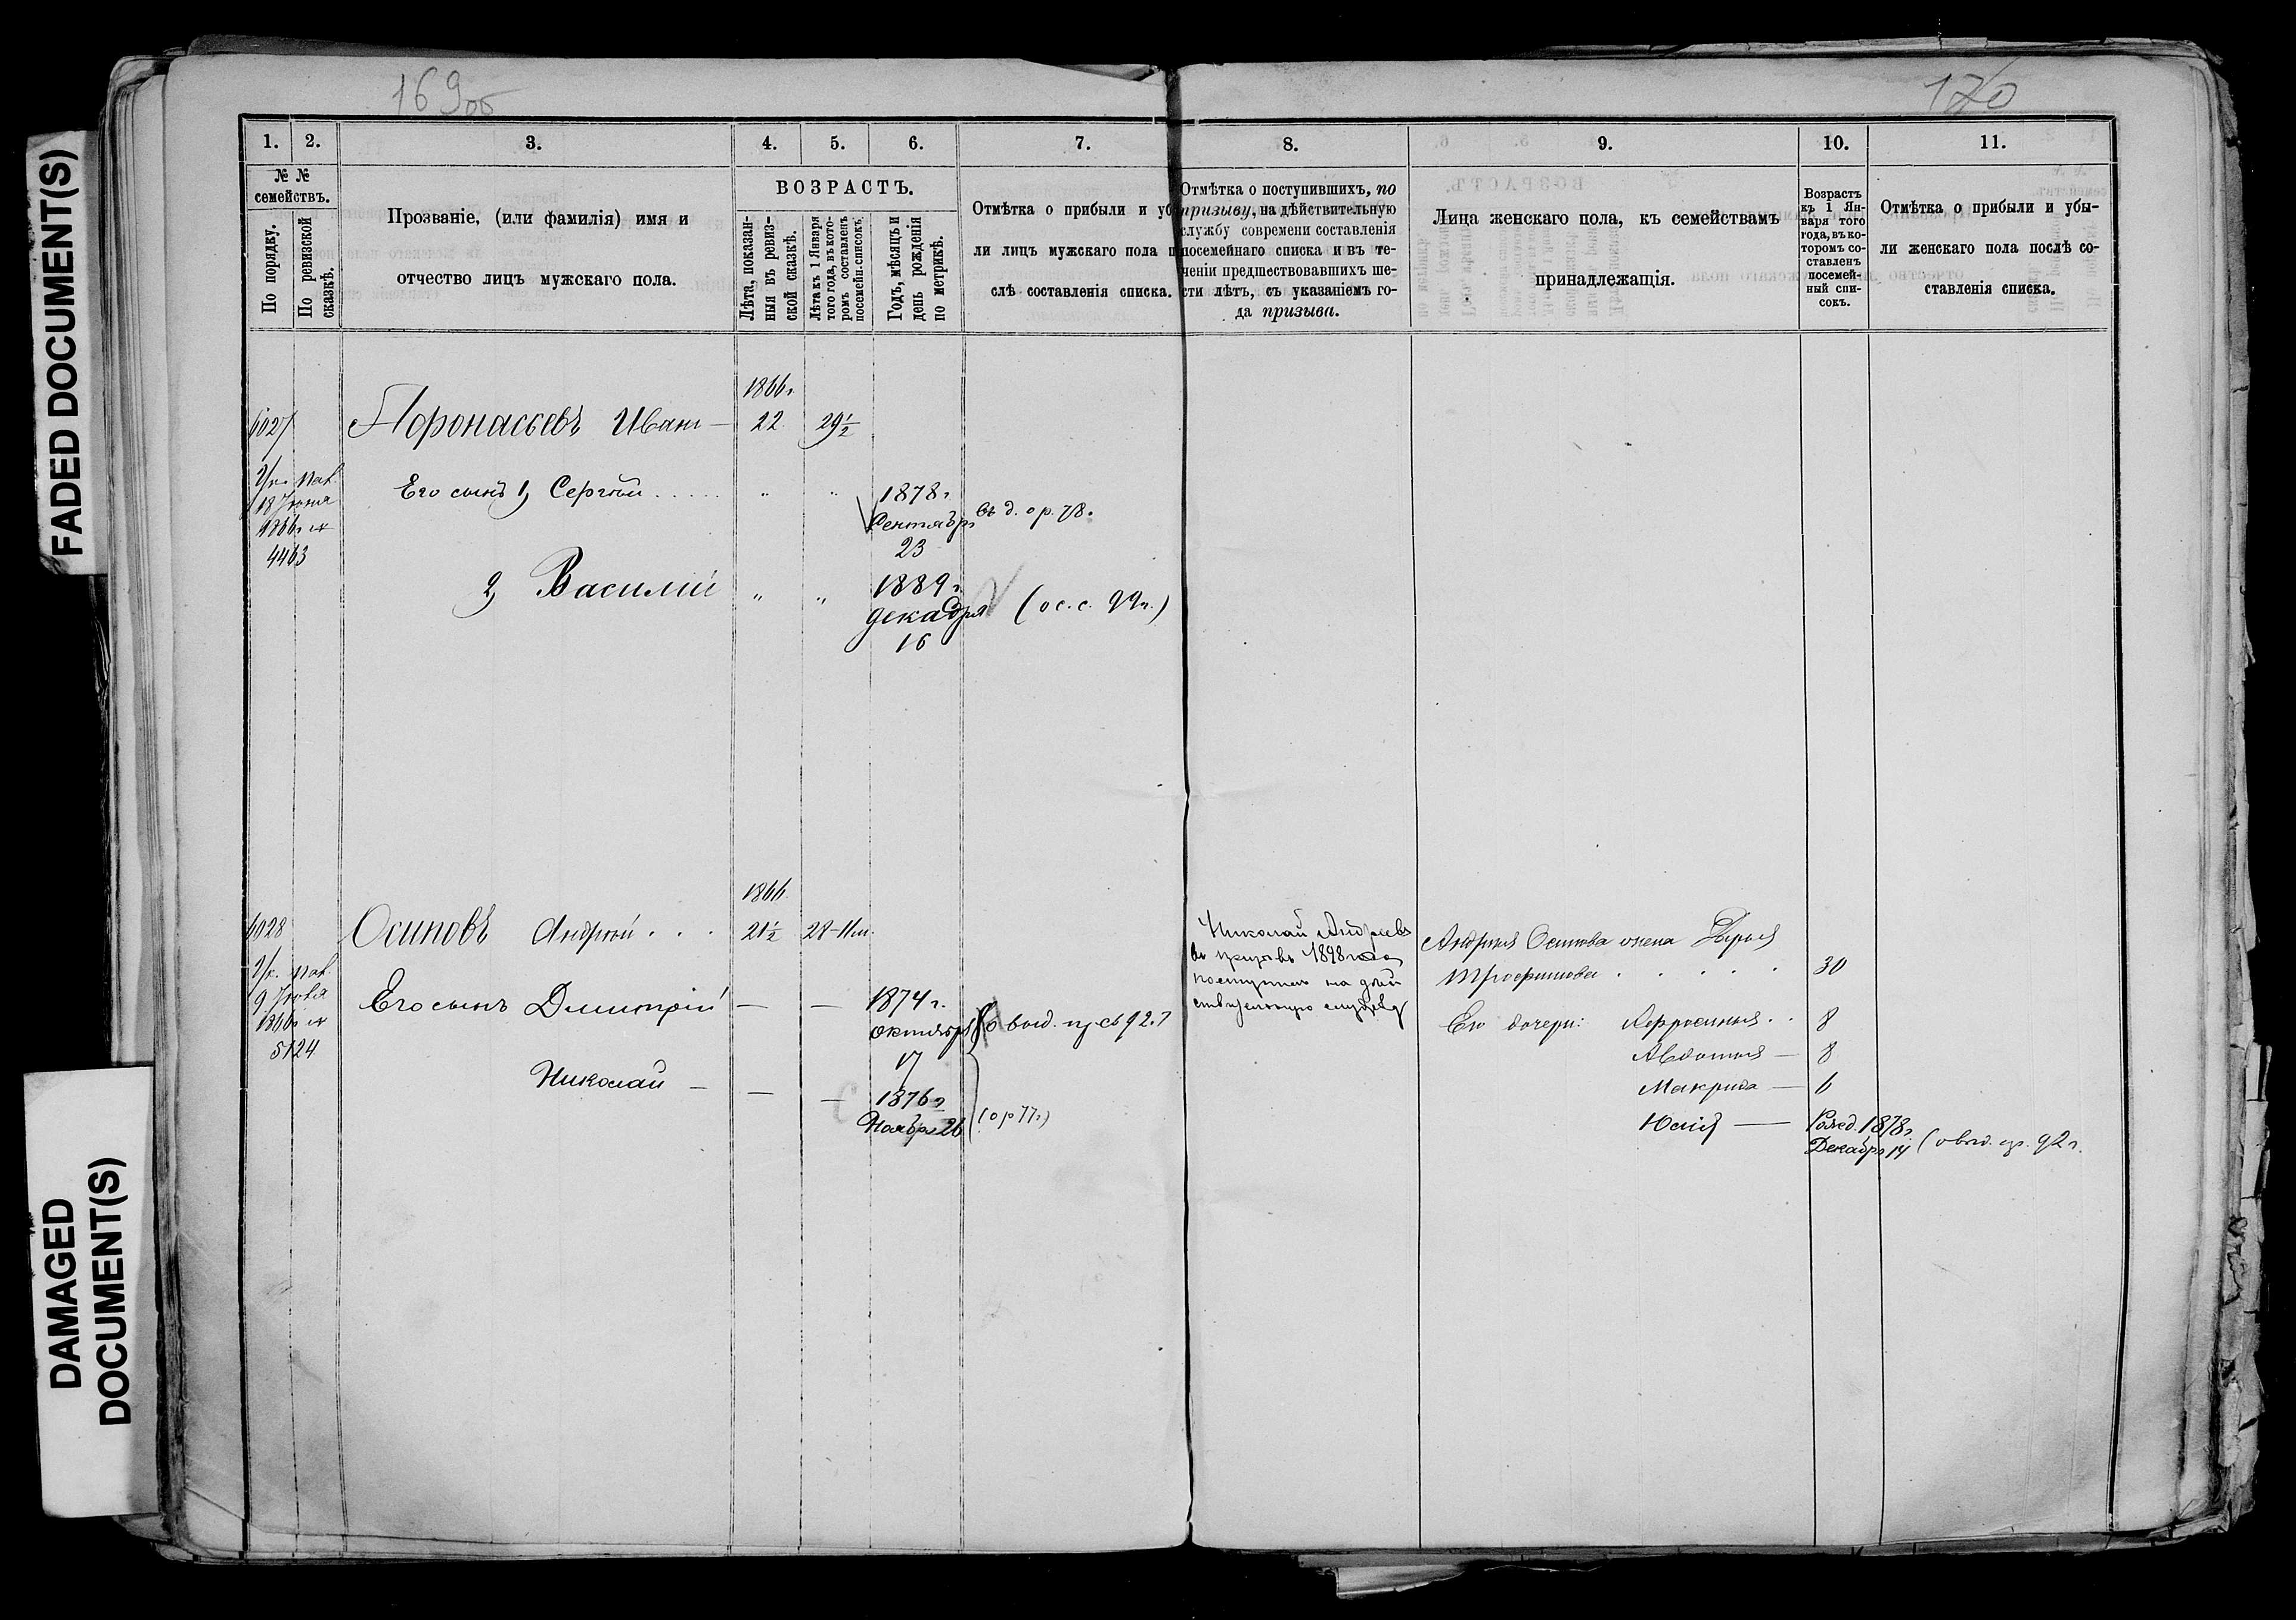 FADED DOCUMENT(S)
DAMAGED
DOCUMENT(S)
169об
170
1. 2. 3. 4. 5. 6. 7. 8. 9. 10. 11.
№ №
семействъ.
По порядку.
По ревизской
сказкѣ.
Прозваніе, (или фамилія) имя и
отчество лицъ мужскаго пола.
ВОЗРАСТЪ.
Лѣта, показан-
ныя въ ревиз-
ской сказкѣ.
Лѣта къ 1 Января
того года, въ кото-
ромъ составленъ
посемейн. списокъ.
Годъ, мѣсяцъ и
день рожденія
по метрикѣ.
Отмѣтка о прибыли и уб
ли лицъ мужскаго пола п
слѣ составленія списка.
Отмѣтка о поступившихъ, по
призыву, на дѣйствительную
службу современи составленія
посемейнаго списка и въ те-
ченіи предшествовавшихъ ше-
сти лѣтъ, съ указаніемъ го-
да призыва.
Лица женскаго пола, къ семействамъ
принадлежащія.
Возрастъ
къ 1 Ян-
варя того
года, въ ко-
торомъ со-
ставленъ
посемей-
ный спи-
сокъ.
Отмѣтка о прибыли и убы-
ли женскаго пола послѣ со-
ставленія списка.
1866г
6027 Афонасьевъ Иванъ — 22 29½
Ук. Пал.
18 Іюня
1866г №
4463
Его сынъ 1, Сергѣй . . . . . " " 1878г
Сентябр
23
св д. о р. 78.
2, Василій " " 1889г.
декабря
16
(о с. с. 99г.)
1866
6028 Осиповъ Андрей . . . 21½ 28-11м.
Ук. Пал.
9 Іюля
1866г №
5124
Его сынъ Дмитрій — — 1874г.
октября
17
Николай — — — 1876г
Ноябр 26
(о р 77г)
Николай Андреевъ
въ призывъ 1898 года
поступилъ на дѣй
ствительную службу
Андрея Осипова жена Дарья
Трофимова . . . . . 30
Его дочери: Афросинья . . 8
Авдотья — 8
Макрида — 6
Юлія — Рожд. 1878г.
Декабря 14
92г.